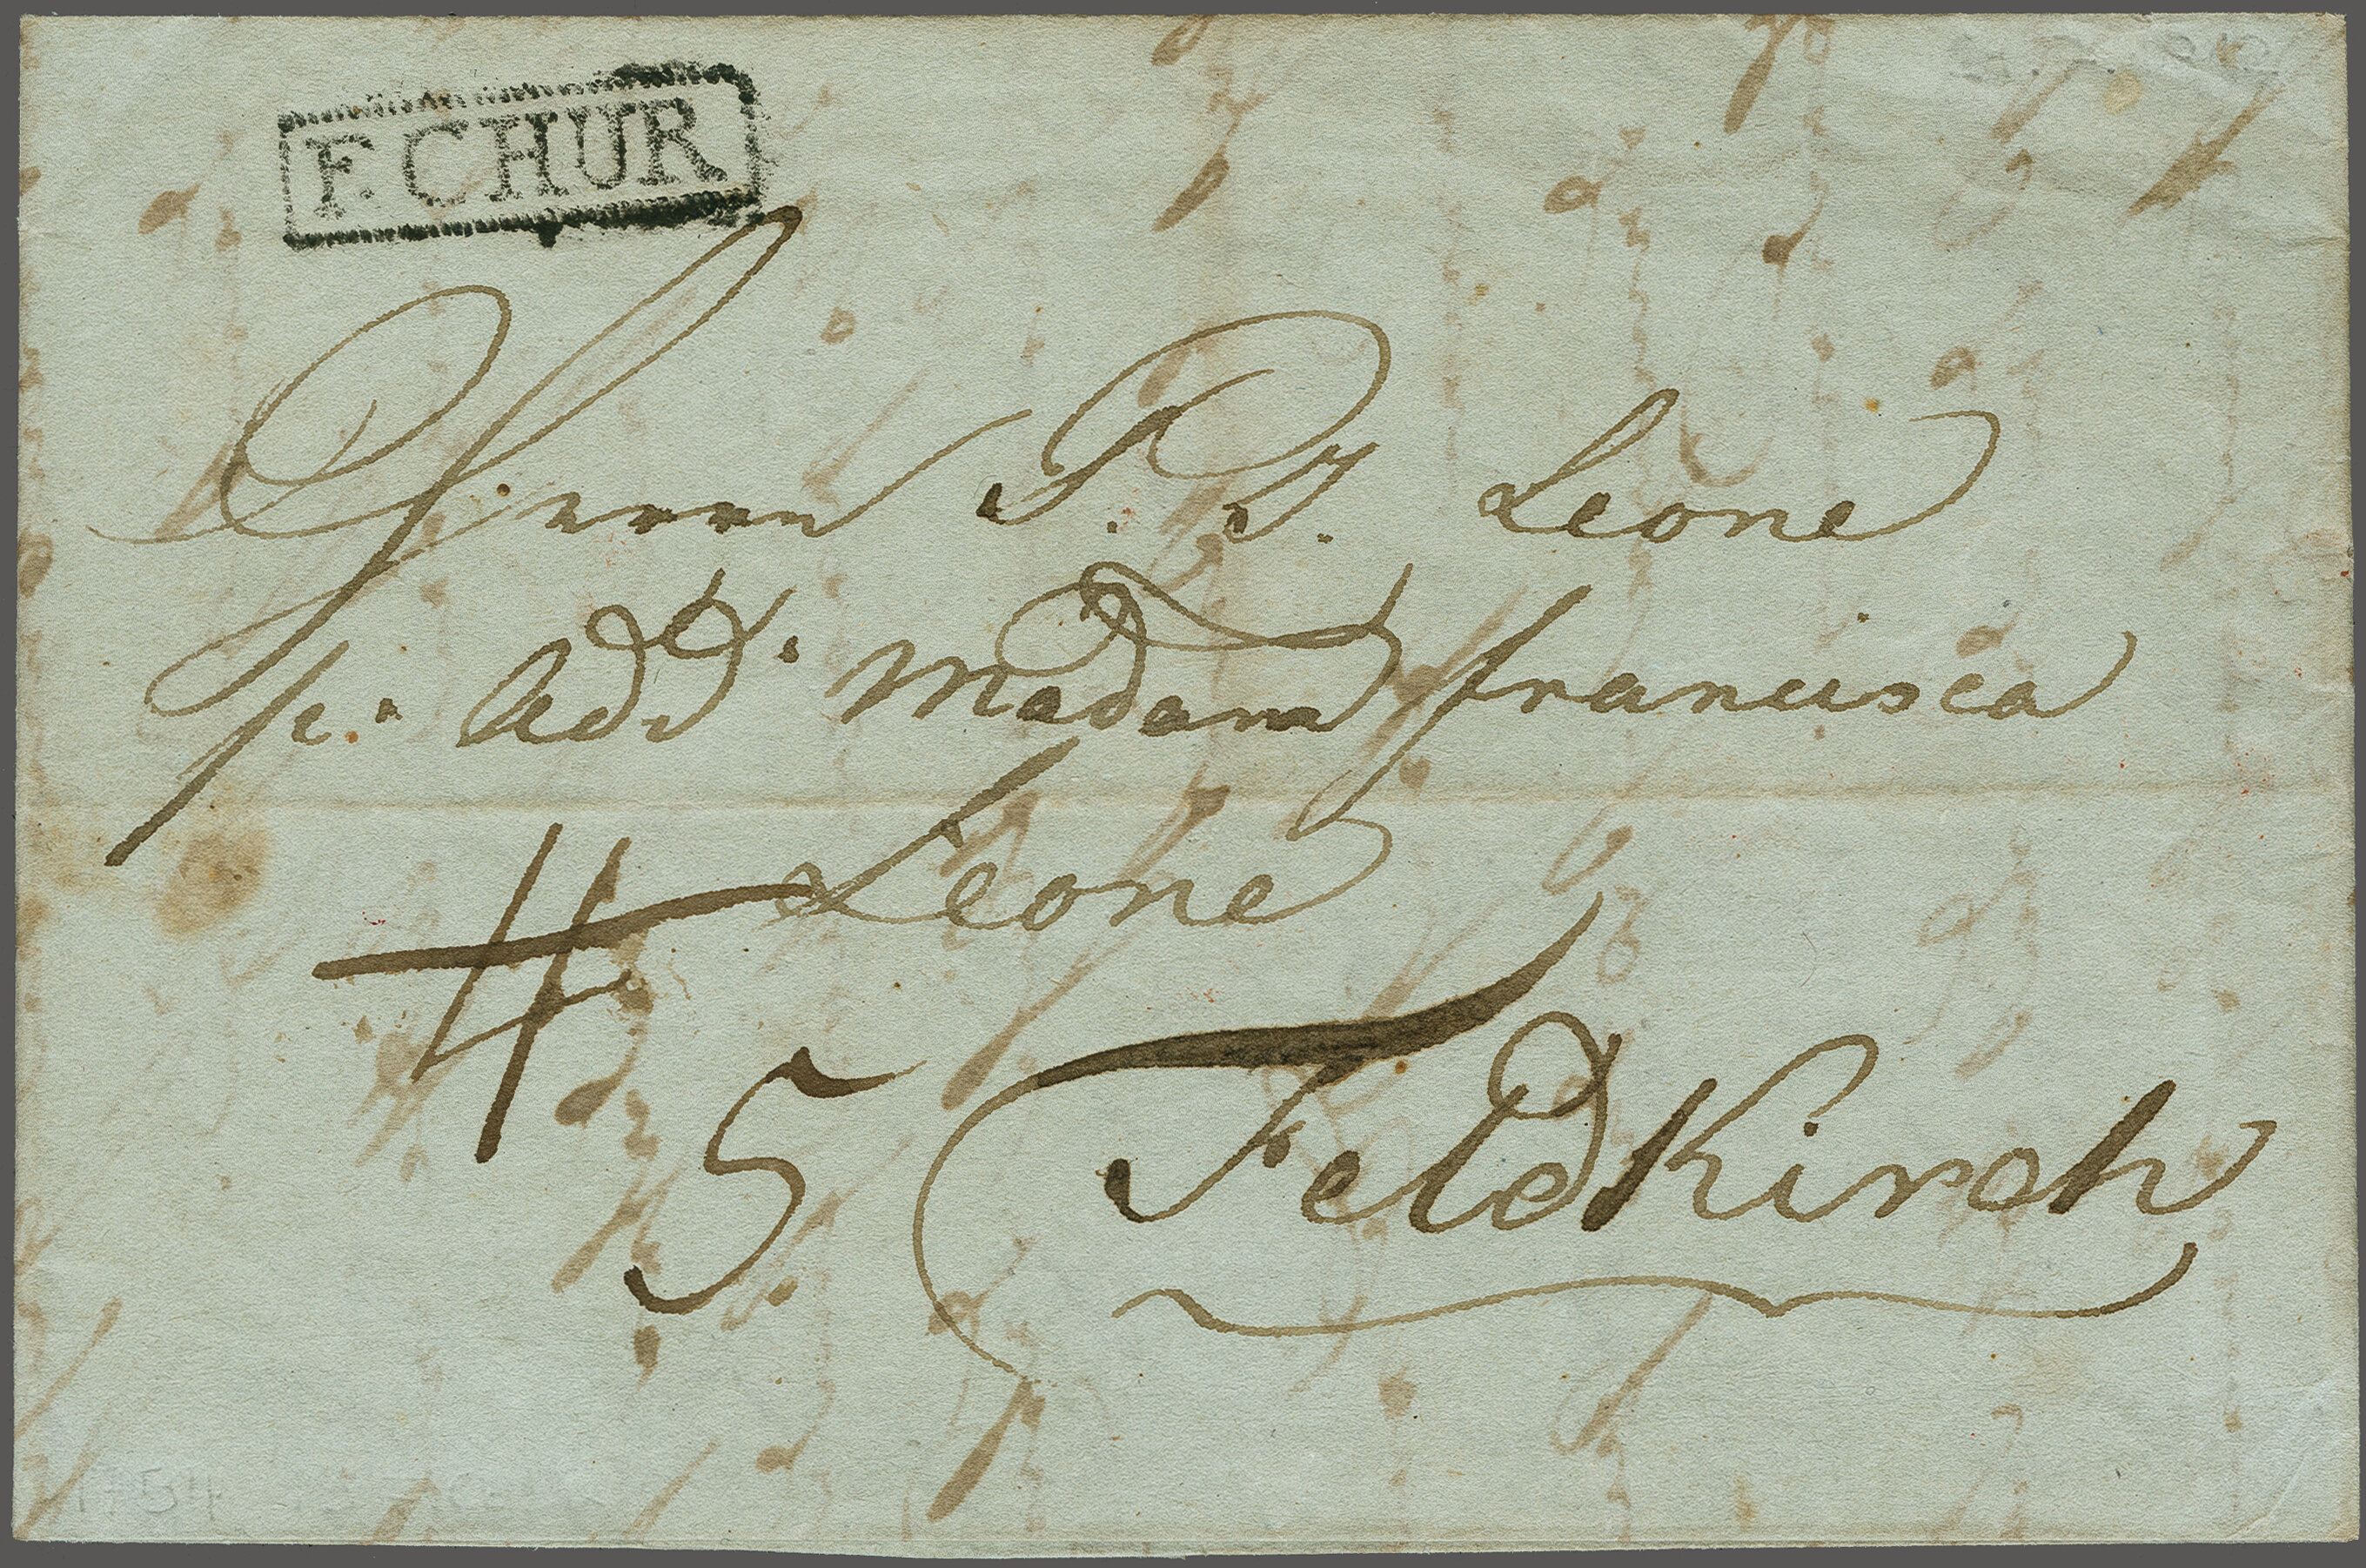 F. CHUR
Herrn P. J. Leone
pr. Add. Madam Francisca
Leone
5 Feldkirch